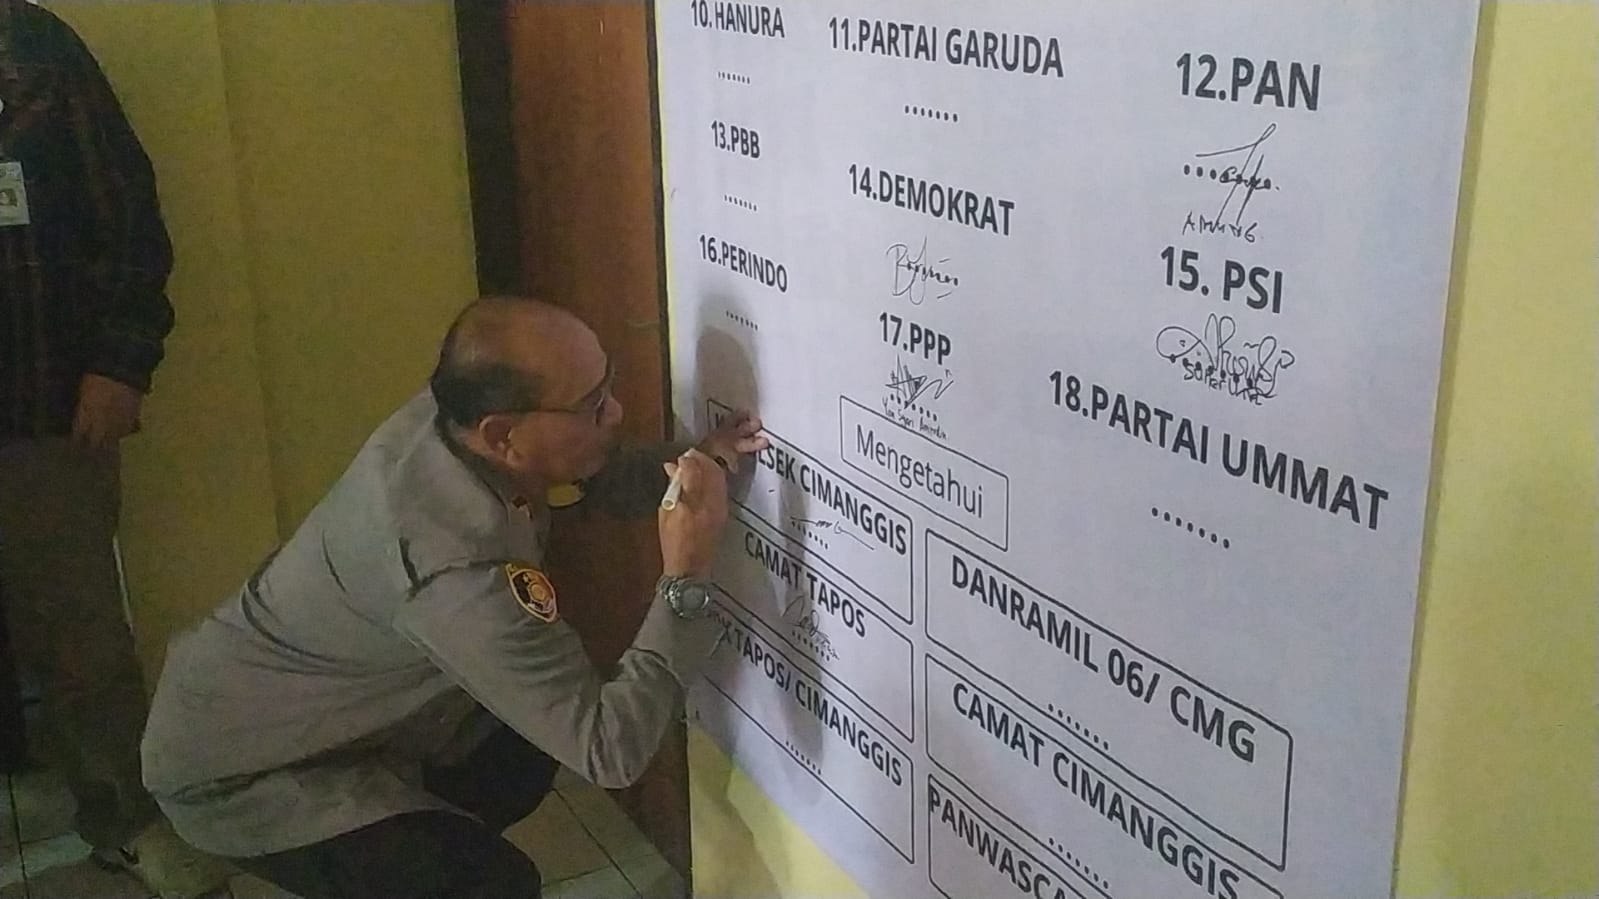 10.HANURA
.......
11.PARTAI GARUDA
.......
12.PAN
...
13.PBB
.......
14.DEMOKRAT
15. PSI
16.PERINDO
.......
17.PPP
.......
18.PARTAI UMMAT
.......
Mengetahui
CIMANGGIS
.......
DANRAMIL 06/ CMG
.......
CAMAT TAPOS
.......
CAMAT CIMANGGIS
.......
TAPOS/ CIMANGGIS
.......